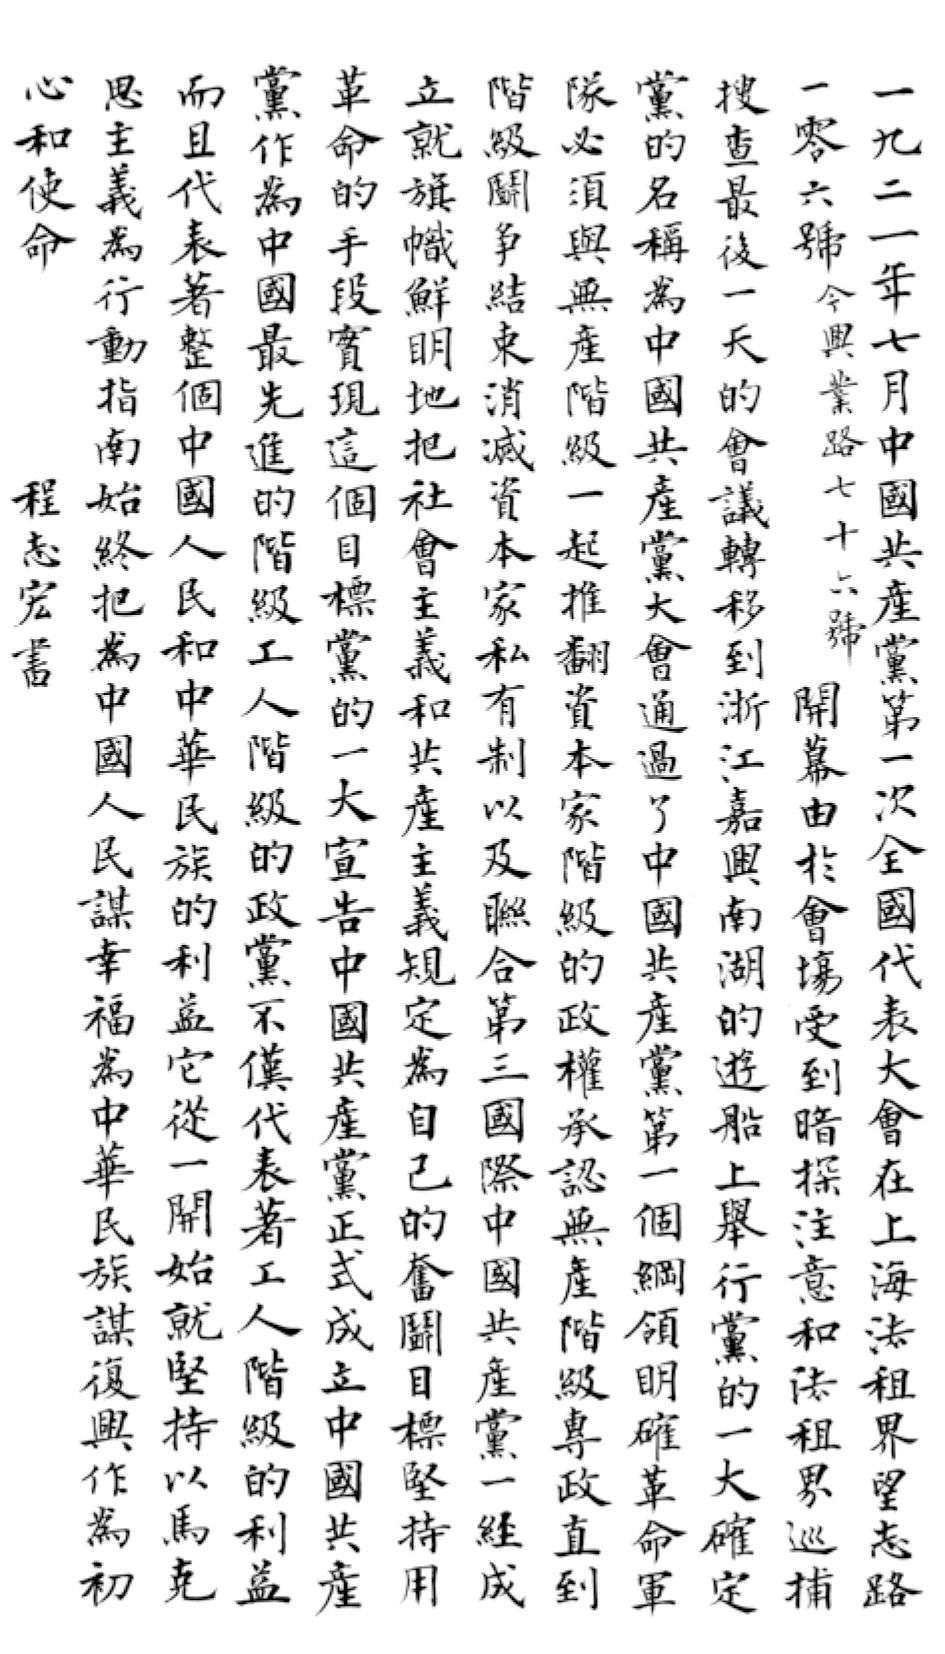 一九二一年七月中國共産黨第一次全國代表大會在上海法租界望志路
一零六號今興業路七十六號開幕由於會場受到暗探注意和法租界巡捕
搜查最後一天的會議轉移到浙江嘉興南湖的遊船上舉行黨的一大確定
黨的名稱為中國共産黨大會通過了中國共産黨第一個綱領明確革命軍
隊必須與無産階級一起推翻資本家階級的政權承認無産階級專政直到
階級鬭爭結束消滅資本家私有制以及聯合第三國際中國共産黨一經成
立就旗幟鮮明地把社會主義和共産主義規定為自己的奮鬭目標堅持用
革命的手段實現這個目標黨的一大宣告中國共産黨正式成立中國共産
黨作為中國最先進的階級工人階級的政黨不僅代表著工人階級的利益
而且代表著整個中國人民和中華民族的利益它從一開始就堅持以馬克
思主義為行動指南始終把為中國人民謀幸福為中華民族謀復興作為初
心和使命
程志宏書